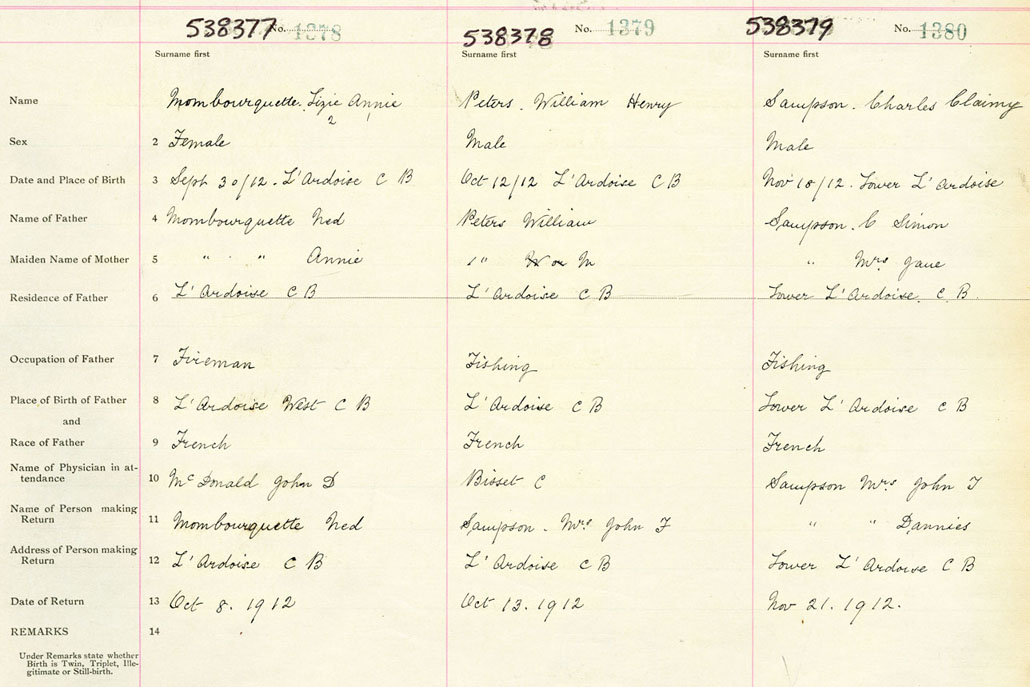 538377 No. 1378 538378 No. 1379 538379 No. 1380
Surname first Surname first Surname first
Name Mombourquette. Lizie Annie Peters. William Henry Sampson. Charles Claimy
2
Sex 2 Female Male Male
Date and Place of Birth 3 Sept 30/12. L'Ardoise C B Oct 12/12 L'Ardoise C B Nov 18/12. Lower L'Ardoise
Name of Father 4 Mombourquette Ned Peters William Sampson. C Simon
Maiden Name of Mother 5 " " Annie " M " Mrs Jane
Residence of Father 6 L'Ardoise C B L'Ardoise C B Lower L'Ardoise. C B.
Occupation of Father 7 Fireman Fishing Fishing
Place of Birth of Father 8 L'Ardoise West C B L'Ardoise C B Lower L'Ardoise C B
and
Race of Father 9 French French French
Name of Physician in at-
tendance 10 McDonald John D Bisset C Sampson Mrs John F
Name of Person making
Return 11 Mombourquette Ned Sampson. Mrs John F " " Dannies
Address of Person making
Return 12 L'Ardoise C B L'Ardoise C B Lower L'Ardoise C B
Date of Return 13 Oct 8. 1912 Oct 13. 1912 Nov 21. 1912.
REMARKS 14
Under Remarks state whether
Birth is Twin, Triplet, Ille-
gitimate or Still-birth.